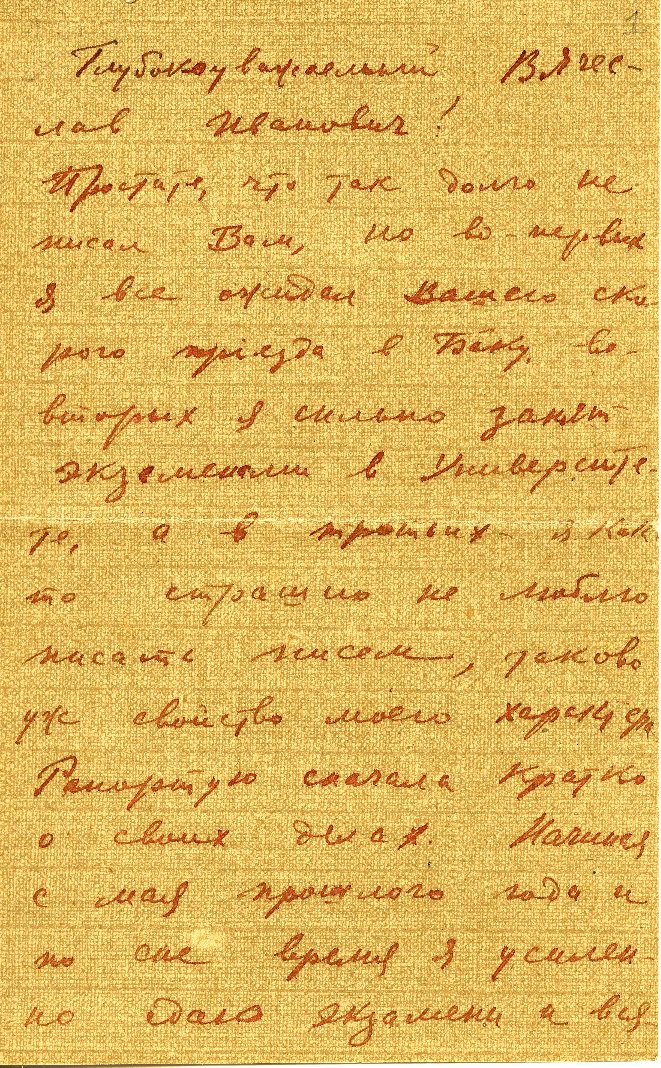 1
Глубокоуважаемый Вячес-
лав Иванович!
Простите, что так долго не
писал Вам, но во-первых
я все ожидал Вашего ско-
рого приезда в Баку, во-
вторых я сильно занят
экзаменами в Университе-
те, а в третьих - я как
то страшно не люблю
писать писем, таково
уж свойство моего характера
Рапортую сначала кратко
о своих делах. Начиная
с мая прошлого года и
по сие время я усилен-
но сдаю экзамены и вся-